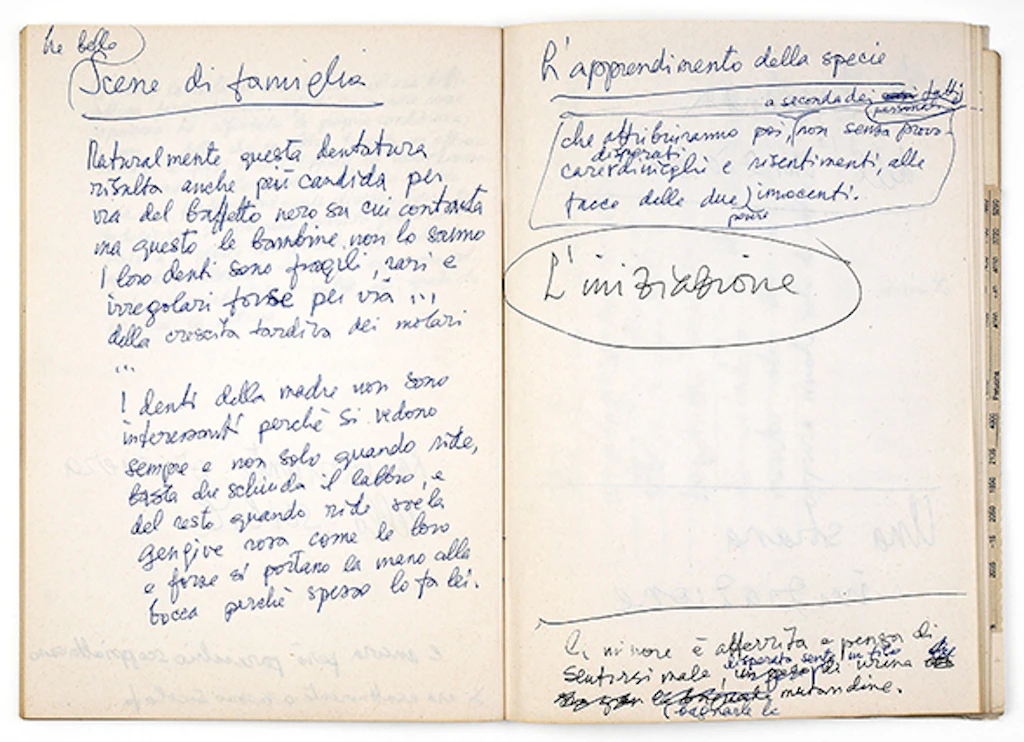 tre belle
Scene di famiglia
Naturalmente questa dentatura
risalta anche più candida per
via del baffetto nero su cui contrasta
ma questo le bambine non lo sanno
I loro denti sono fragili, rari e
irregolari forse per via ...
della crescita tardiva dei molari
...
I denti della madre non sono
interessanti perchè si vedono
sempre e non solo quando ride,
basta che schiuda il labbro, e
del resto quando ride svela
gengive rosa come le loro
e forse si portano la mano alla
bocca perchè spesso lo fa lei.
L'apprendimento della specie
a seconda dei fatti
personali
che attribuiranno poi, non senza provo
disperati
care dinieghi e risentimenti, alle
facce delle due innocenti.
L'iniziazione
La minore è atterrita e pensa di
disperata sente un filo
sentirsi male, di urina
mutandine.
(bagnarle le